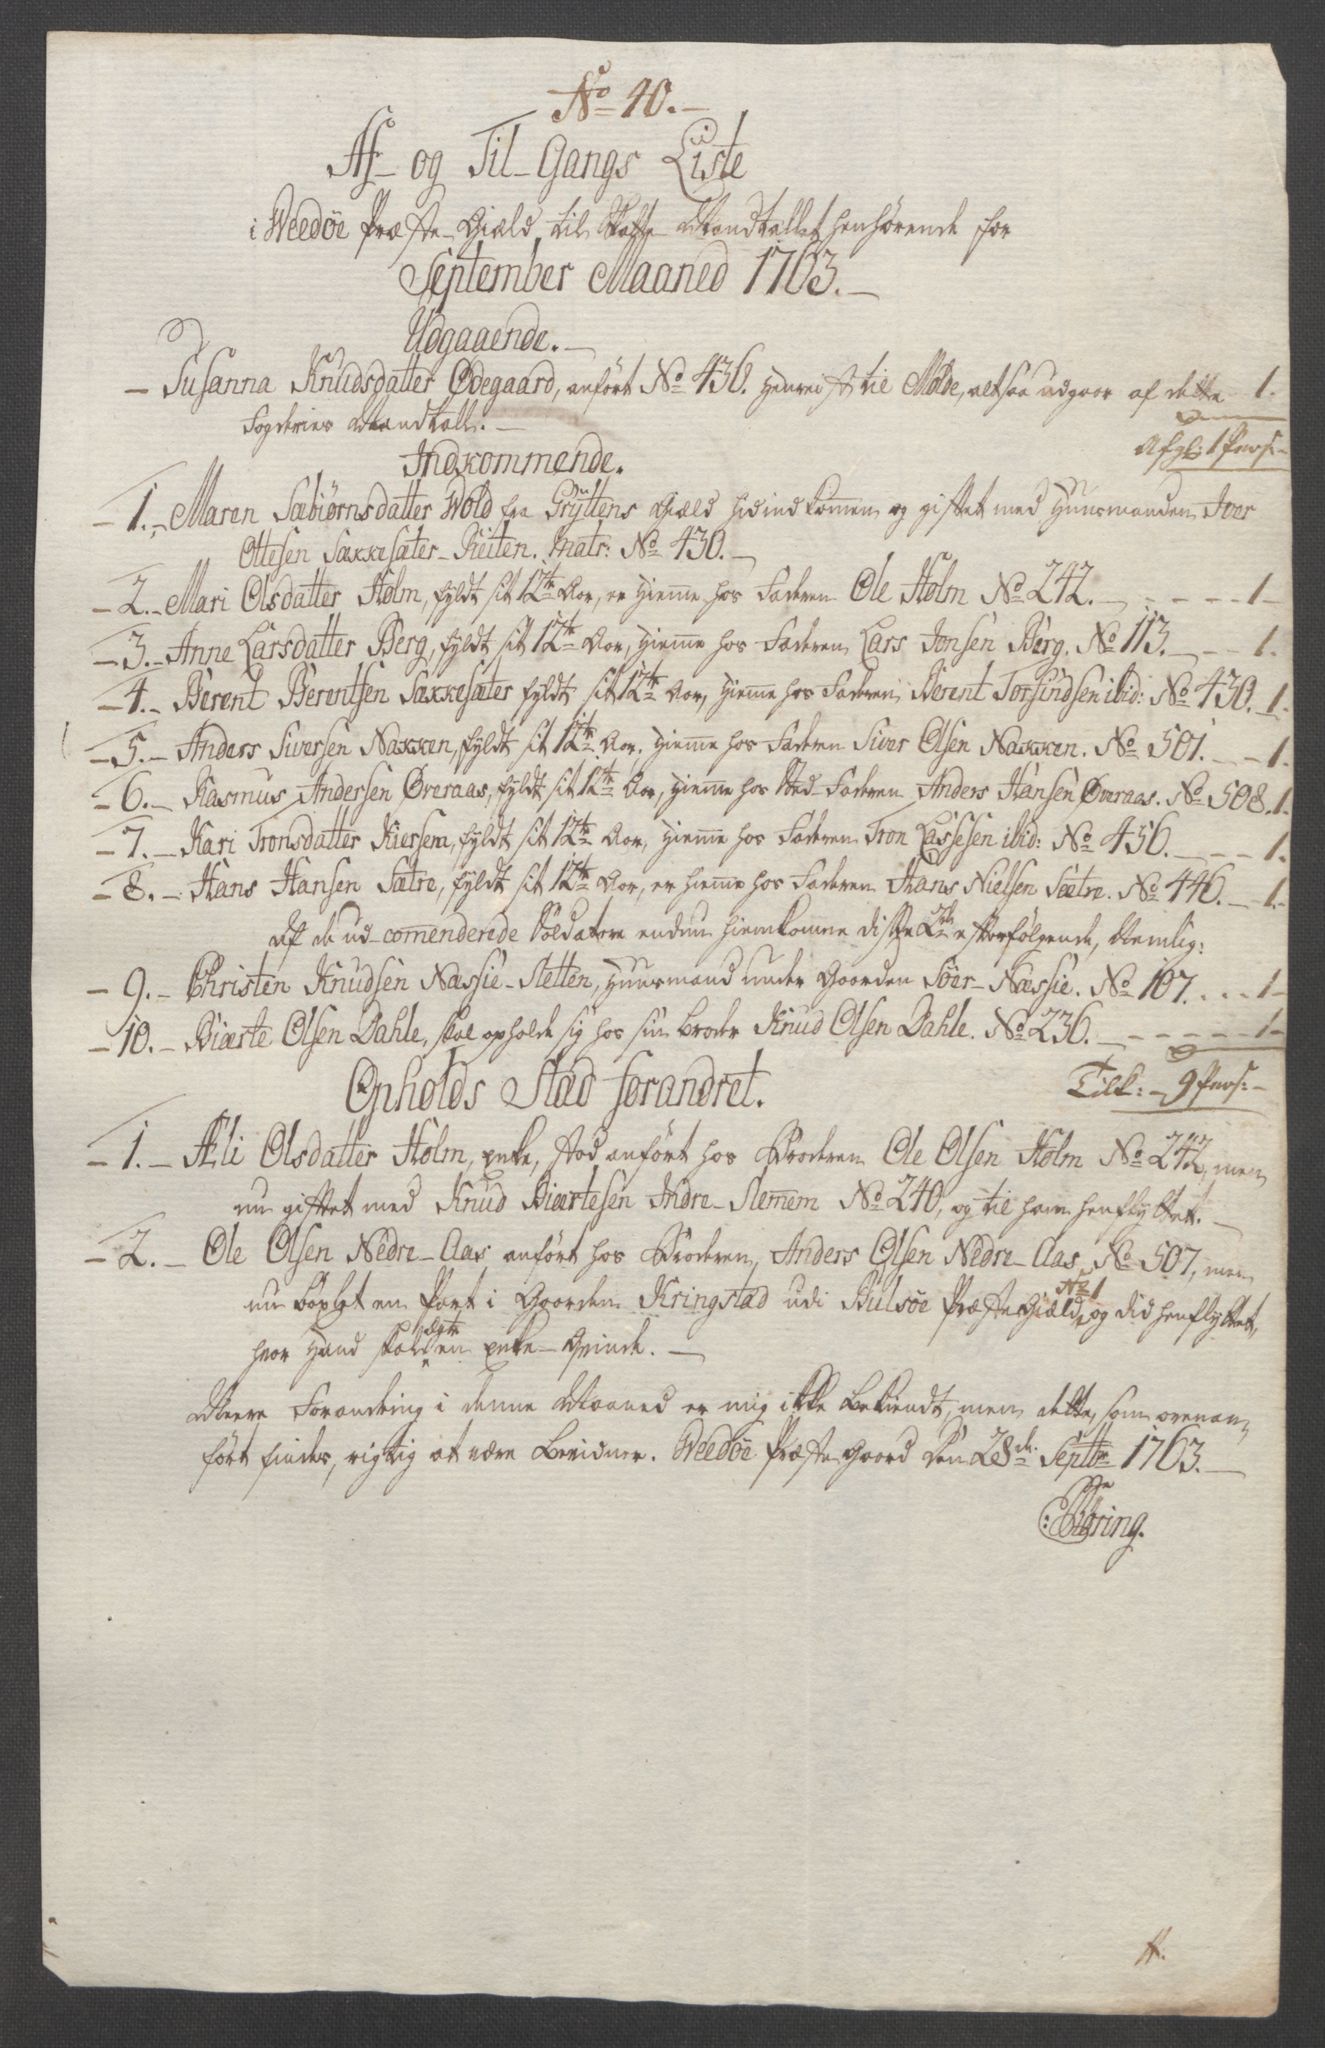 No 40.
Af- og Til-Gangs Liste
i Weedøe Præste-Giæld til Skatte-Mandtallet henhørende for
September Maaned 1763.
Udgaaende.
Susanna Knudsdatter Ødegaard, anført No 436. henreist til Molde, altsaa udgaar af dette 1.
Fogderies Mandtall.
Afg: 1 Pers:
Indkommende.
1. Maren Sæbiørnsdatter Wold fra Gryttens Giæld hidindkommen og giftet med Huusmanden Iver
Ottesen Sækkesæter-Reiten. Matr: No 430.
2. Mari Olsdatter Holm, fyldt sit 12te Aar, er hieme hos Faderen Ole Holm No 242. 1
3. Anne Larsdatter Berg, fyldt sit 12te Aar, hieme hos Faderen Lars Jonsen Berg. No 113. 1.
4. Berent Berentsen Sækkesæter fyldt sit 12te Aar, hieme hos Faderen Berent Torsundsen ibid: No 430. 1.
5. Anders Siversen Nakken, fyldt sit 12te Aar, hieme hos Faderen Siver Olsen Nakken. No 501. 1.
6. Rasmus Andersen Øveraas, fyldt sit 12te Aar, hieme hos Sted-Faderen Anders Hansen Øveraas. No 508. 1.
7. Kari Tronsdatter Kiersem, fyldt sit 12te Aar, hieme hos Faderen Tron Lassesen ibid: No 456. 1.
8. Hans Hansen Sætre, fyldt sit 12te Aar, er hieme hos Faderen Hans Nielsen Sætre. No 446. 1.
Af de ud-comenderede Soldatere endnu hiemkomne disse 2de efterfølgende, Nemlig:
9. Christen Knudsen Næssie-Sletten, Huusmand under Gaarden Søer-Næssie. No 107. 1
10. Biærte Olsen Dahle, skal opholde sig hos sin Broder Knud Olsen Dahle. No 236. 1
Till: 9 Pers:
Opholds Stæd forandret.
1. Æli Olsdatter Holm, Enke, stod anført hos Broderen Ole Olsen Holm No 242, men
nu giftet med Knud Biærtesen Indre-Slemem No 240, og til ham henflyttet.
2. Ole Olsen Nedre-Aas, anført hos Broderen Anders Olsen Nedre-Aas No 507, men
nu bøxlet en Part i Gaarden Kringstad udi Bulsøe Præste Giæld No 1, og did henflyttet,
hvor Hand skal ægte en Enke-Qvinde.
Meere Forandring i denne Maaned er mig ikke Bekiendt, men dette, som ovenan-
ført findes, rigtig at være Bevidner. Weedøe Præste Gaard den 28de Septbr 1763.
E Børing.